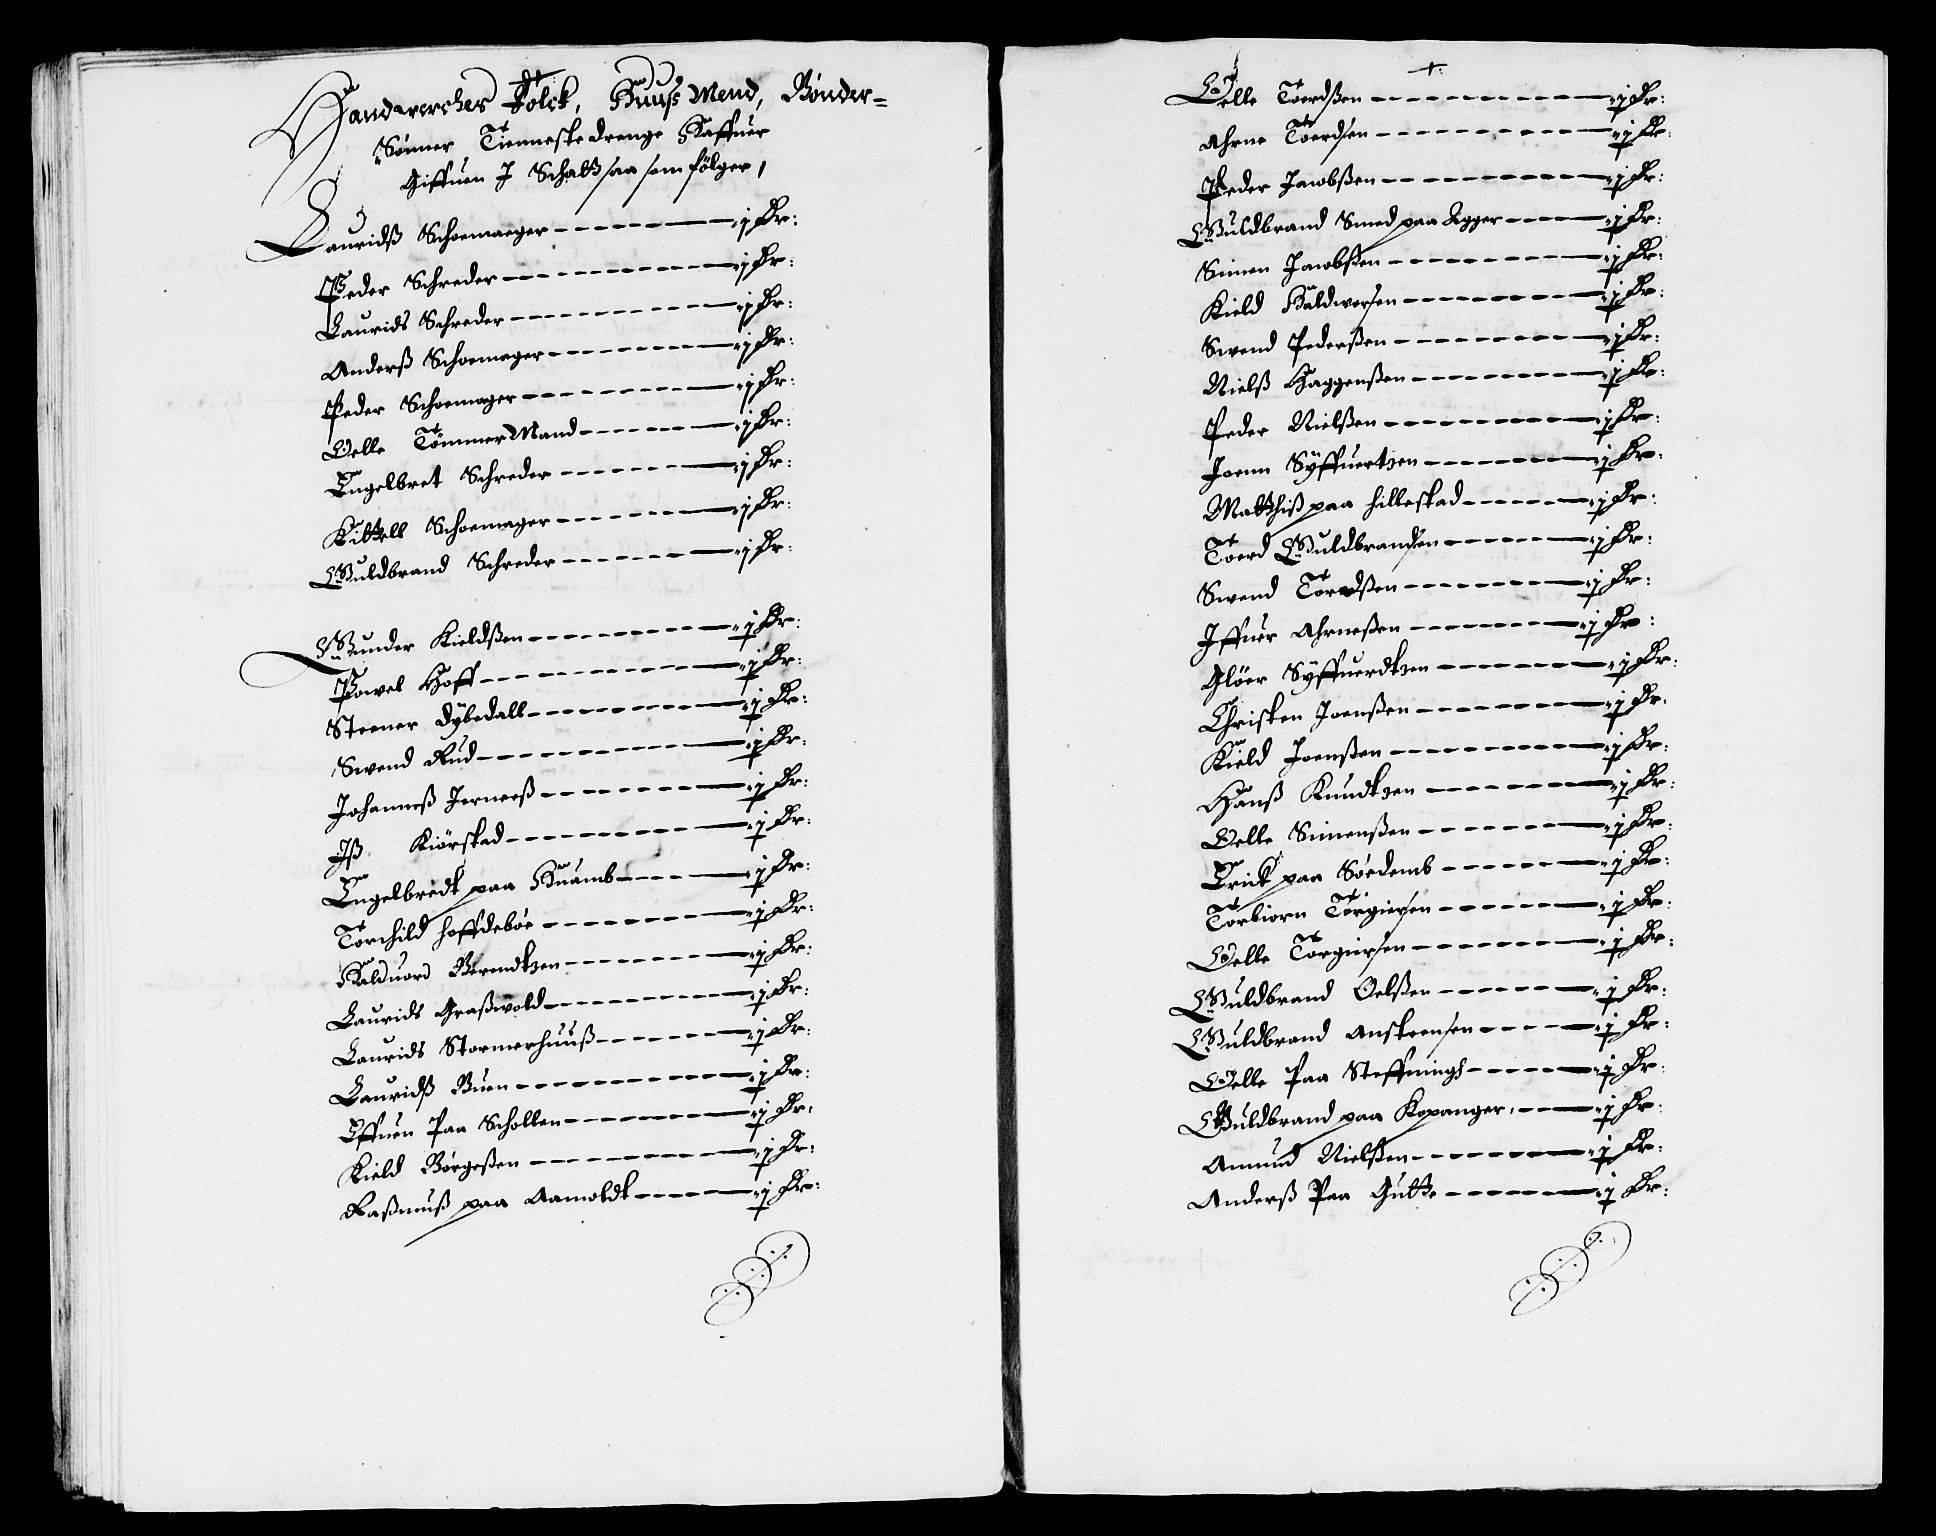 Handwerches Folck, Huuß Mend, Bønder-
Sønner Tienneste drenge Haffuer
Giffuen J Schatt saa som følger,
Lauridß Schoemaeger - j Dr:
Peder Schreder - j Dr:
Laurids Schreder - j Dr:
Anderß Schoemager - j Dr:
Peder Schoemager - j Dr:
Oelle Tømmer Mand - j Dr:
Engelbret Schreder - j Dr:
Kittell Schoemager - j Dr:
Guldbrand Schreder - j Dr:
Gunder Kieldßen - j Dr:
Powel Hoff - j Dr:
Steener dybedall - j Dr:
Swend Rud - j Dr:
Johanneß Jerneeß - j Dr:
Jß Kiørstad - j Dr:
Engelbredt paa Knamb - j Dr:
Torchild hoffdebøe - j Dr:
Halduord Berendtzen - j Dr:
Laurids Graßwold - j Dr:
Laurids Stormerhuuß - j Dr:
Lauridß Buen - j Dr:
Effuen Paa Schollen - j Dr:
Kield Børgeßen - j Dr:
Raßmuß paa Aamoldt - j Dr:
Oelle Toerdßen - j Dr:
Ahrne Toerdsen - j Dr:
Peder Jacobßen - j Dr:
Guldbrand Smed paa Agger - j Dr:
Simen Jacobßen - j Dr:
Kield Haldworsen - j Dr:
Swend Pederßen - j Dr:
Nielß Haggenßen - j Dr:
Peder Nielßen - j Dr:
Joenn Syffuertzen - j Dr:
Matthiß paa hillestad - j Dr:
Toerd Guldbrandsen - j Dr:
Swend Toredßen - j Dr:
Jffuer Ahrneßen - j Dr:
Gløer Syffuerdtzen - j Dr:
Christen Joenßen - j Dr:
Kield Joenßen - j Dr:
Hanß Knudtzen - j Dr:
Oelle Simenßen - j Dr:
Erick paa Sørdemb - j Dr:
Torbiorn Torgiersen - j Dr:
Oelle Torgiersen - j Dr:
Guldbrand Oelßen - j Dr:
Guldbrand Ansteensen - j Dr:
Oelle Paa Steffnings - j Dr:
Guldbrand paa Kopanger - j Dr:
Amund Nielßen - j Dr:
Anderß Paa Gutte - j Dr: